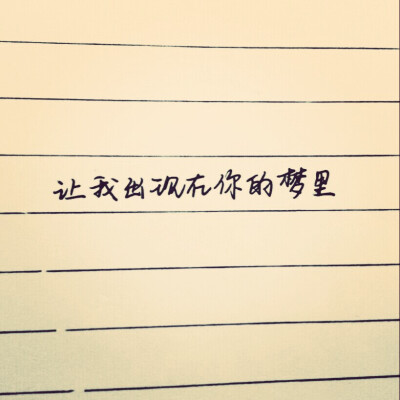 让我出现在你的梦里